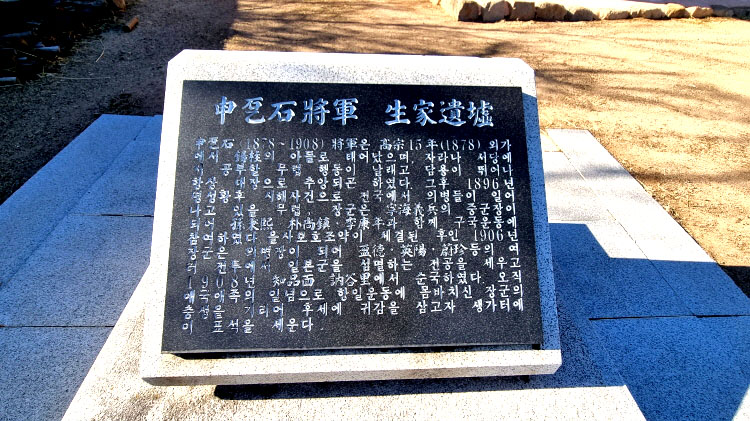 申乭石將軍 生家遺墟
申乭石(1878~1908) 將軍은 高宗15年(1878) 외가
에서 錫柱의 아들로 태어났으며 자라나 서당에
서 공부할 무렵 행동이 날래고 담용이 뛰어나
항상 대장으로 추앙되곤 하였다 그후 1896년
명성황후 시해사건으로 전국에서 의병들이 일어
나고 있을 무렵 장군은 寧海義兵의 중군장이
되어 朴尚鎭 李康年과 함께 구국운동에
참여하였다 을사보호조약이 체결된 후인 1906년
장군은 의병장이 되어 盈德·英陽·蔚珍등의 여
러 전투에서 일본군을 섬멸하는 전공을 세우고
1908년 知品面 訥谷里에서 순국하였다 오직
애국애족의 일념으로 항일운동에 몸바치신 장군의
충성을 기리어 후세에 귀감을 삼고자 생가터에
이 표석을 세운다